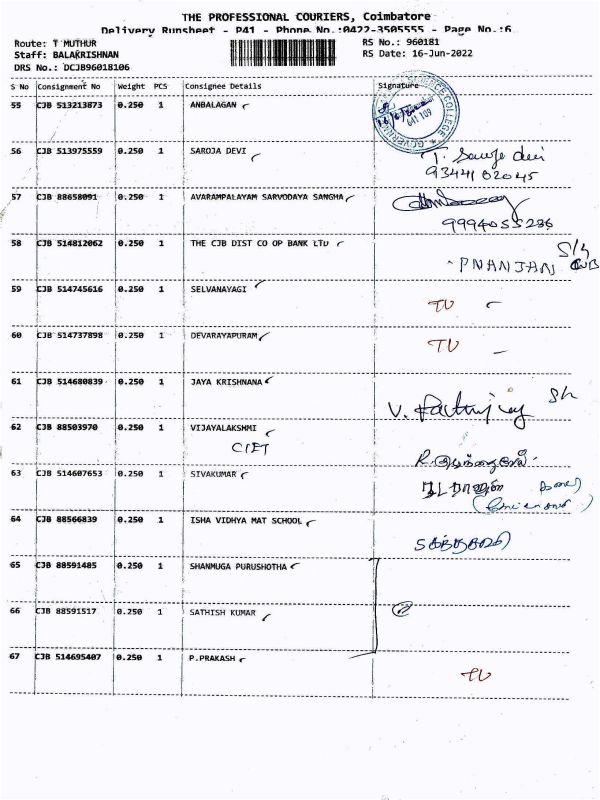 THE PROFESSIONAL COURIERS, Coimbatore
Delivery Runsheet - P41 - Phone No.:0422-3505555 - Page No.:6
Route: T MUTHUR RS No.: 960181
Staff: BALAKRISHNAN RS Date: 16-Jun-2022
DRS No.: DCJB96018106
S No Consignment No Weight PCS Consignee Details Signature
55 CJB 513213873 0.250 1 ANBALAGAN
56 CJB 513975559 0.250 1 SAROJA DEVI T. Saroje devi
9344102045
57 CJB 88658091 0.250 1 AVARAMPALAYAM SARVODAYA SANGHA
9994055236
58 CJB 514812062 0.250 1 THE CJB DIST CO OP BANK LTD
59 CJB 514745616 0.250 1 SELVANAYAGI TU
60 CJB 514737898 0.250 1 DEVARAYAPURAM TU
61 CJB 514680839 0.250 1 JAYA KRISHNANA
62 CJB 88503970 0.250 1 VIJAYALAKSHMI
CIET
63 CJB 514607653 0.250 1 SIVAKUMAR
64 CJB 88566839 0.250 1 ISHA VIDHYA MAT SCHOOL
65 CJB 88591485 0.250 1 SHANMUGA PURUSHOTHA
66 CJB 88591517 0.250 1 SATHISH KUMAR
67 CJB 514695407 0.250 1 P.PRAKASH TU